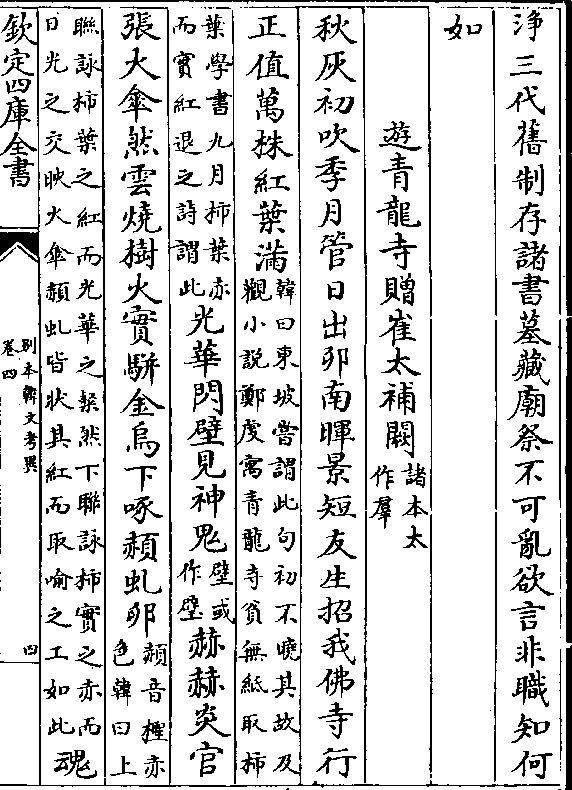 淨三代舊制存諸書墓藏廟祭不可亂欲言非職知何
如
遊青龍寺贈崔太補闕諸本太作羣
秋灰初吹季月管日出卯南暉景短友生招我佛寺行
正值萬株紅葉滿韓曰東坡嘗謂此句初不曉其故及觀小說鄭虔寓青龍寺貧無紙取柿
葉學書九月柿葉赤而實紅退之詩謂此光華閃壁見神鬼壁或作璧赫赫炎官
張火傘然雲燒樹火實駢金烏下啄赬虬卵赬音檉赤色韓曰上
聯詠柿葉之紅而光華之粲然下聯詠柿實之赤而日光之交映火傘赬虬皆狀其紅而取喻之工如此魂
欽定四庫全書
別本韓文考異
卷四
四